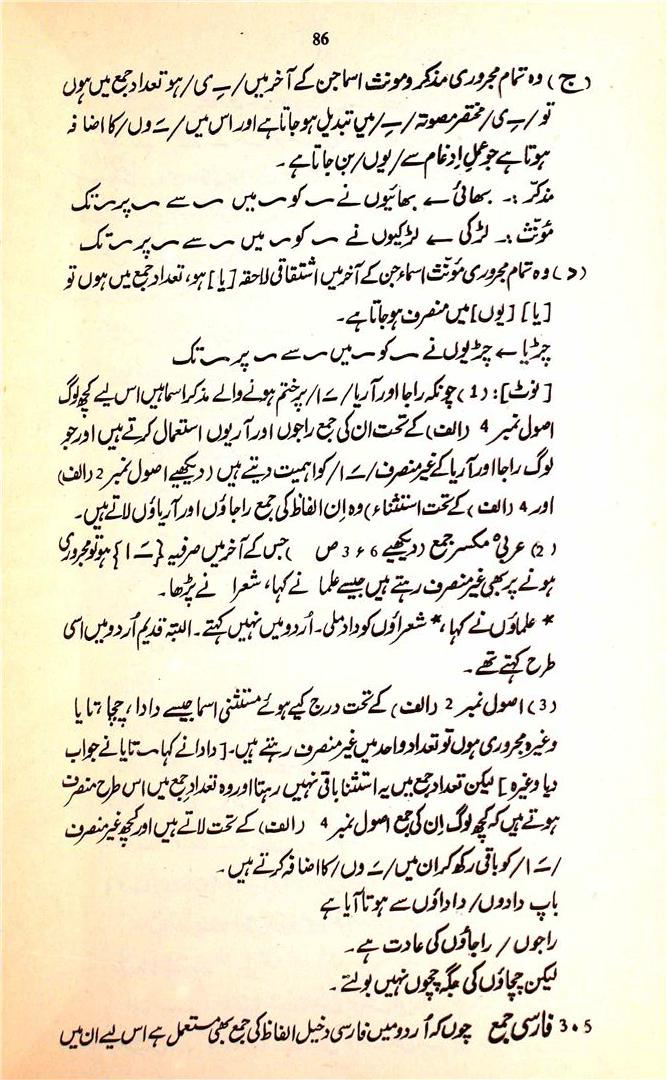 86
(ج) وہ تمام مجروری مذکر و مونث اسما جن کے آخر میں /ـِ ی/ ہو تعداد جمع میں ہوں
تو /ـِ ی/ مختصر مصوتہ /ـِ/ میں تبدیل ہو جاتا ہے اور اس میں /ـَ وں/ کا اضافہ
ہوتا ہے جو عملِ ادغام سے /یوں/ بن جاتا ہے ۔
مذکّر :۔ بھائی ← بھائیوں نے ؍ کو ؍ میں ؍ سے ؍ پر ؍ تک
مؤنّث :۔ لڑکی ← لڑکیوں نے ؍ کو ؍ میں ؍ سے ؍ پر ؍ تک
(د) وہ تمام مجروری مؤنّث اسماء جن کے آخر میں اشتقاقی لاحقہ [یا] ہو، تعداد جمع میں ہوں تو
[یا] [یوں] میں منصرف ہو جاتا ہے۔
چڑیا ← چڑیوں نے ؍ کو ؍ میں ؍ سے ؍ پر ؍ تک
[نوٹ]: (1) چونکہ راجا اور آریا /ـَ ا/ پر ختم ہونے والے مذکر اسما ہیں اس لیے کچھ لوگ
اصول نمبر 4 (الف) کے تحت ان کی جمع راجوں اور آریوں استعمال کرتے ہیں اور جو
لوگ راجا اور آریا کے غیر منصرف /ـَ ا/ کو اہمیت دیتے ہیں (دیکھیے اصول نمبر 2 (الف)
اور 4 (الف) کے تحت استثناء) وہ اِن الفاظ کی جمع راجاؤں اور آریاؤں لاتے ہیں۔
(2) عربی مکسر جمع (دیکھیے 3۰6 ص ) جس کے آخر میں صرفیہ {ـَ ا} ہو تو مجروری
ہونے پر بھی غیر منصرف رہتے ہیں جیسے علما نے کہا، شعرا نے پڑھا۔
* علماؤں نے کہا، * شعراؤں کو داد ملی۔ اُردو میں نہیں کہتے۔ البتہ قدیم اُردو میں اسی
طرح کہتے تھے ۔
(3) اصول نمبر 2 (الف) کے تحت درج کیے ہوئے مستثنٰی اسما جیسے دادا، چچا، تایا
وغیرہ مجروری ہوں تو تعداد واحد میں غیر منصرف رہتے ہیں۔ [دادا نے کہا ؍ تایا نے جواب
دیا وغیرہ] لیکن تعداد جمع میں یہ استثنا باقی نہیں رہتا اور وہ تعداد جمع میں اس طرح منصرف
ہوتے ہیں کہ کچھ لوگ اِن کی جمع اصول نمبر 4 (الف) کے تحت لاتے ہیں اور کچھ غیر منصرف
/ـَ ا/ کو باقی رکھ کر ان میں /ـَ وں/ کا اضافہ کرتے ہیں۔
باپ دادوں/ داداؤں سے ہوتا آیا ہے
راجوں / راجاؤں کی عادت ہے۔
لیکن چچاؤں کی جگہ چچوں نہیں بولتے ۔
3۰5 فارسی جمع چوں کہ اُردو میں فارسی دخیل الفاظ کی جمع بھی مستعمل ہے اس لیے ان میں